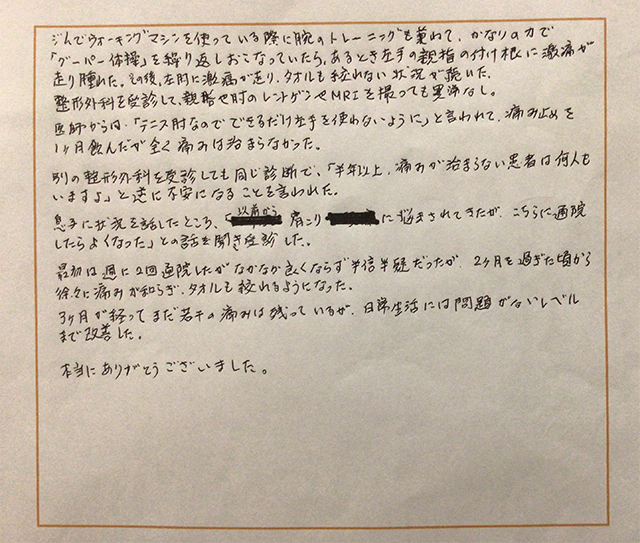 ジムでウォーキングマシンを使っている際に腕のトレーニングも兼ねて、かなりの力で
「グーパー体操」を繰り返しおこなっていたら、あるとき左手の親指の付け根に激痛が
走り腫れた。その後、左肘に激痛が走り、タオルも絞れない状況が続いた。
整形外科を受診して、親指や肘のレントゲンやMRIを撮っても異常なし。
医師からは、「テニス肘なのでできるだけ左手を使わないように」と言われて、痛み止めを
1ヶ月飲んだが全く痛みは治まらなかった。
別の整形外科を受診しても同じ診断で、「半年以上、痛みが治まらない患者は何人も
いますよ」と逆に不安になることを言われた。
息子に状況を話したところ、「以前から 肩こり に悩まされてきたが、こちらに通院
したらよくなった」との話を聞き受診した。
最初は週に2回通院したがなかなか良くならず半信半疑だったが、2ヶ月を過ぎた頃から
徐々に痛みが和らぎ、タオルも絞れるようになった。
3ヶ月が経ってまだ若干の痛みは残っているが、日常生活には問題がないレベル
まで改善した。
本当にありがとうございました。